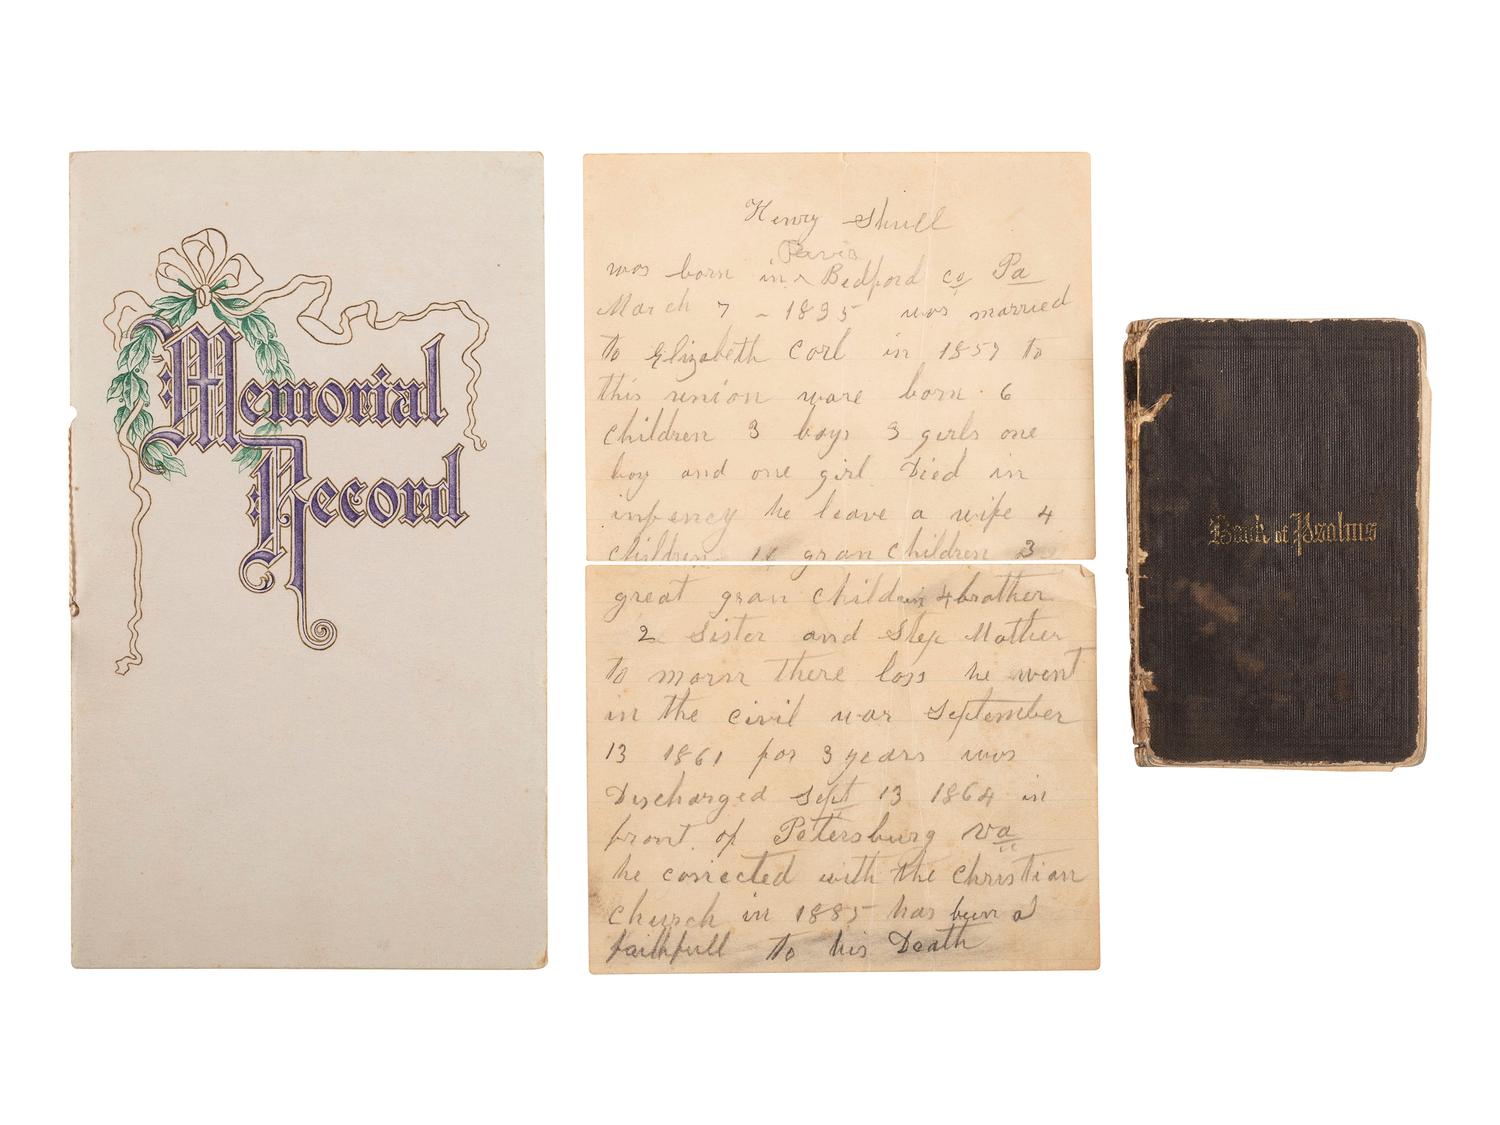 Memorial
Record
Henry Shull
was born in ^ Pavia Bedford co Pa
March 7 - 1835 was married
to Elizabeth Corl in 1857 to
this union ware born 6
children 3 boys 3 girls one
boy and one girl Died in
infency he leave a wife 4
children 14 gran children 3
great gran children 4 brother
2 Sister and Step Mother
to morn there loss he went
in the civil war September
13 1861 for 3 years was
Discharged Sept 13 1864 in
front of Petersburg Va
he conected with the Christian
Church in 1885 has been a
faithfull to his Death
Book of Psalms